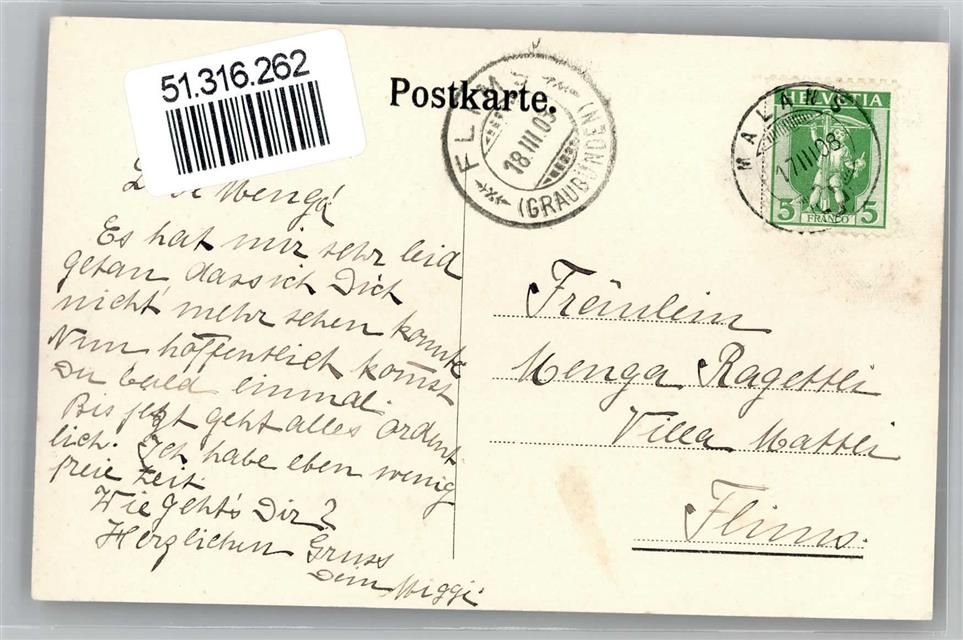 51.316.262
Postkarte.
FLIMS
18.III.08
(GRAUBÜNDEN)
HELVETIA
MALANS
17.III.08
5 FRANCO 5
Menga!
Es hat mir sehr leid
getan, dass ich Dich
nicht mehr sehen konnte
Nun hoffentlich kommst
Du bald einmal.
Bis jetzt geht alles ordent
lich. Ich habe eben wenig
freie Zeit.
Wie geht's Dir?
Herzlichen Gruss
Dein Miggi
Fräulein
Menga Ragettli
Villa Mattli
Flims.